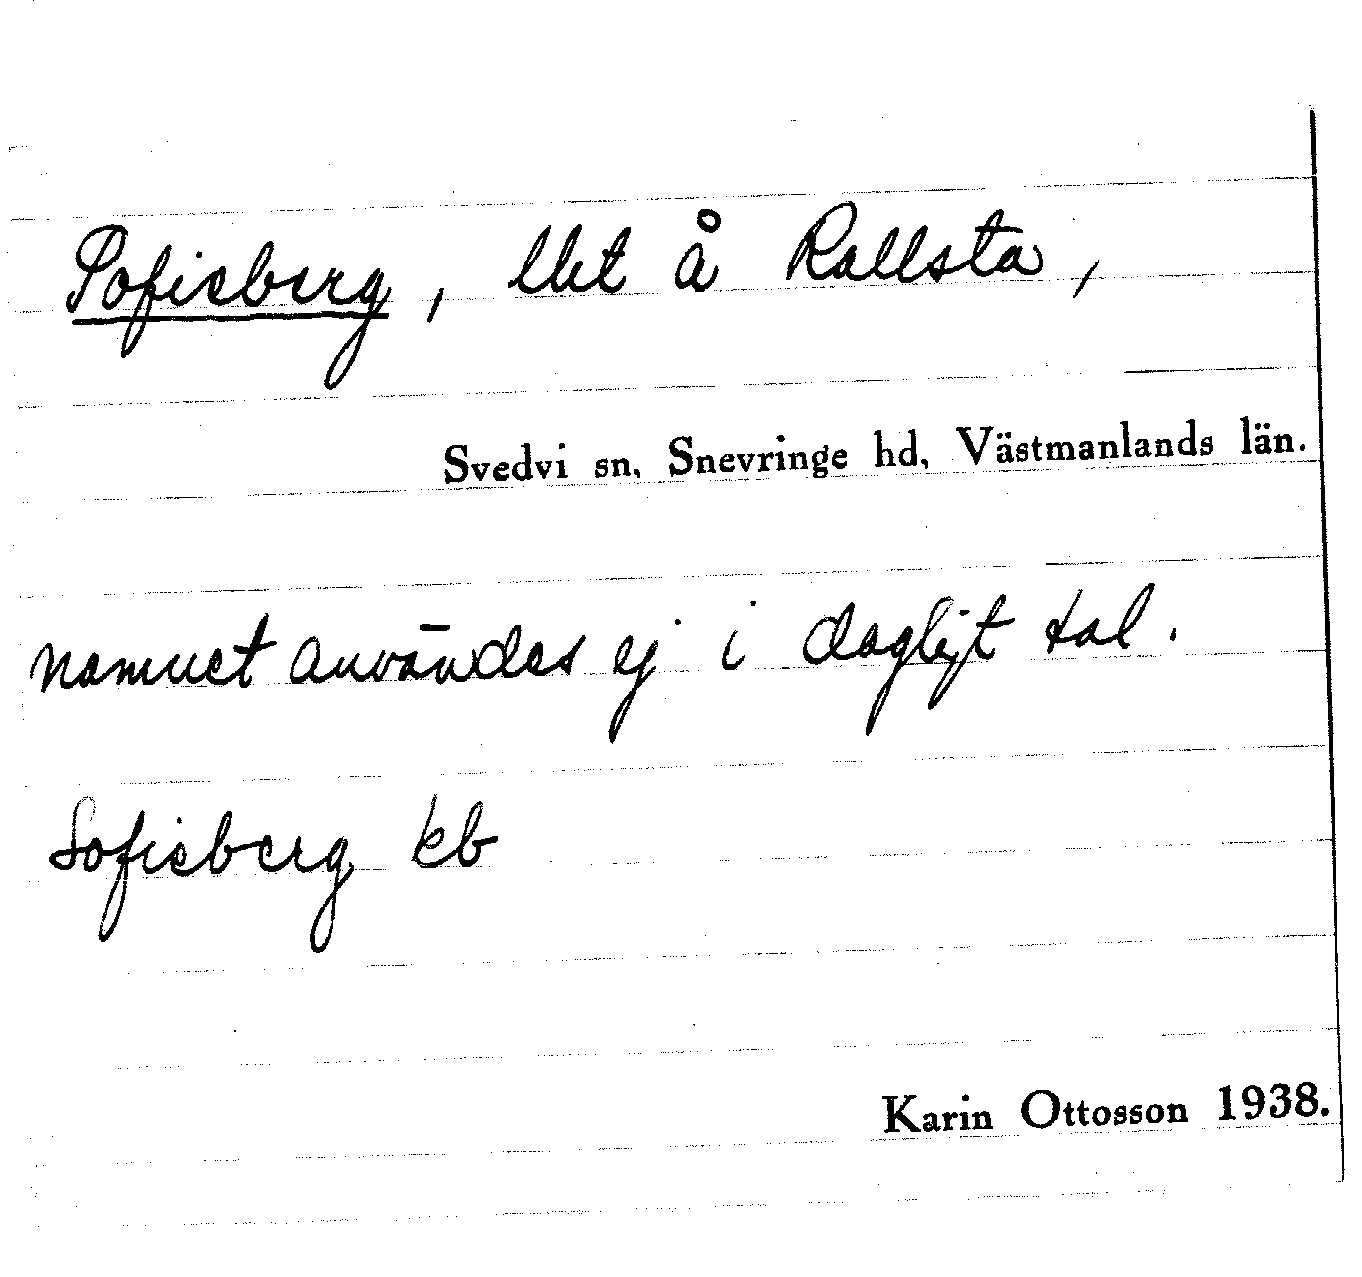 Sofieberg, lht å Rallsta,
Svedvi sn, Snevringe hd, Västmanlands län.
namnet användes ej i dagligt tal.
Sofieberg kb
Karin Ottosson 1938.